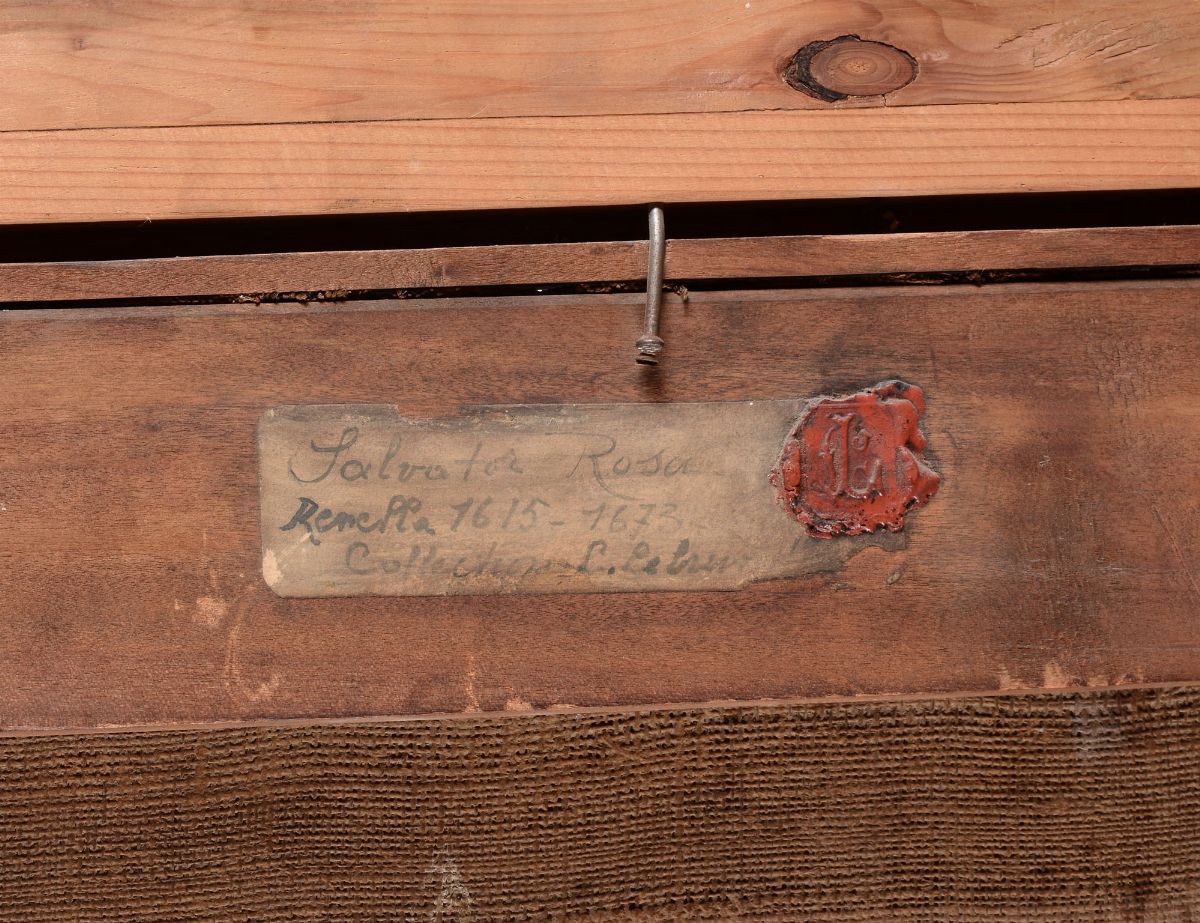 Salvator Rosa
Renella 1615-1673
Collection L. Lebrun
L